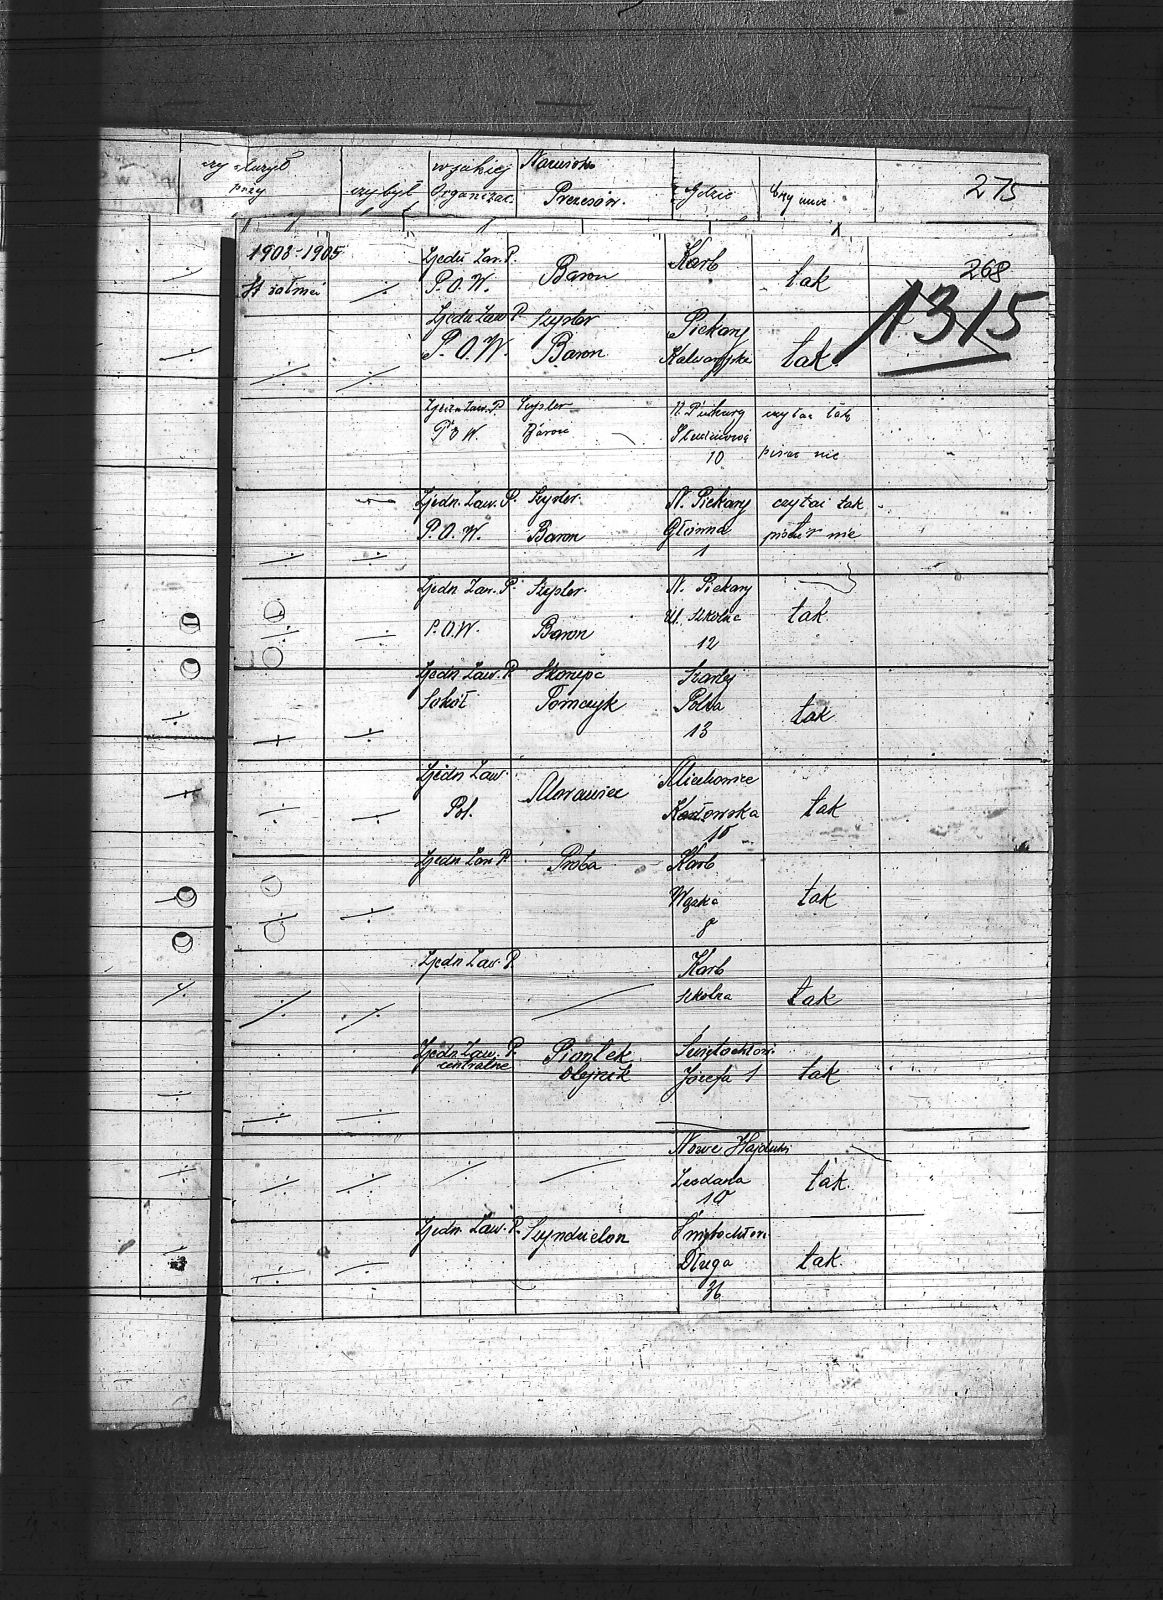 czy służył przy
czy był
w jakiej Organizac.
Nazwisko Prezesów.
Gdzie
Czy umie
275
1903-1905
Zjedn Zaw. P.
Karb
268
P.O.W.
Baron
tak
1315
Zjedn Zaw P.
Szyster
Piekary
P.O.W.
Baron
Kalwaryjska
tak
Zjedn Zaw. P.
Szyster
N. Piekary
czytać tak
P O W.
Baron
10
pisać nie
Zjedn. Zaw. P.
Szyster.
N. Piekary
czytać tak
P.O.W.
Baron
Główna
pisać nie
1
Zjedn Zaw. P.
Szyster.
N. Piekary
P.O.W.
Baron
Ul. Szkolna
tak.
12
Zjedn Zaw. P.
Skorupa
Szarlej
Sokół
Tomczyk
Polna
tak
13
Zjedn Zaw.
Morawiec
Miechowice
Pol.
Kozłowska
tak
10
Zjedn Zaw P.
Proba
Karb
Wąska
tak
8
Zjedn Zaw. P.
Karb
szkolna
tak
Zjedn Zaw. P.
Piontek
Świętochłow.
centralne
Olejnik
Józefa 1
tak
Nowe Hajduki
10
tak.
Zjedn. Zaw. P.
Szyndzielon
Świętochłow.
Długa
tak.
36